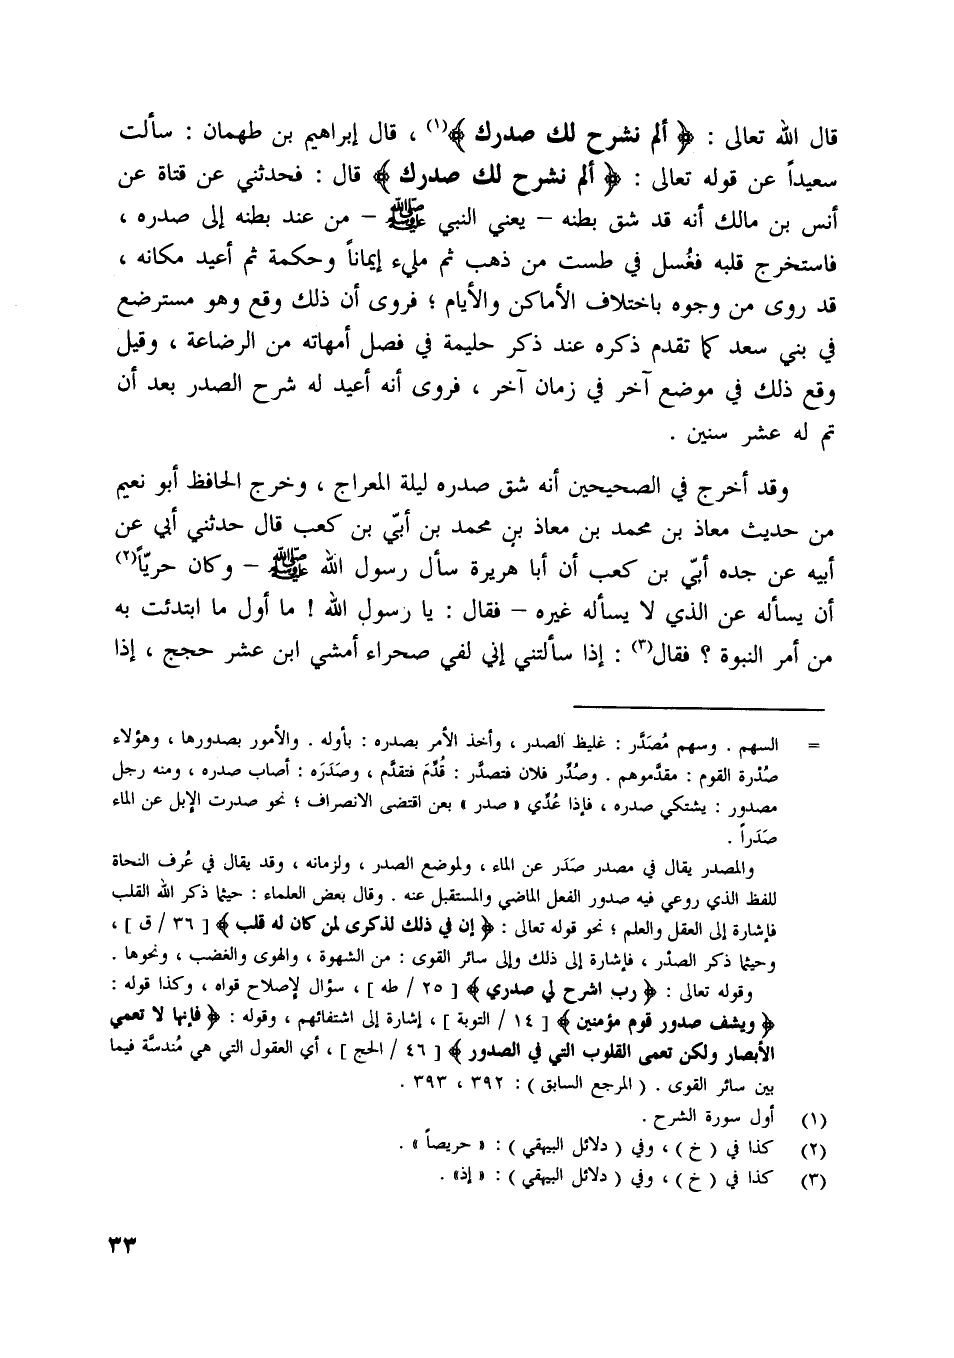 قال الله تعالى : ﴿ ألم نشرح لك صدرك ﴾(١) ، قال إبراهيم بن طهمان : سألت
سعيداً عن قوله تعالى : ﴿ ألم نشرح لك صدرك ﴾ قال : فحدثني عن قتاة عن
أنس بن مالك أنه قد شق بطنه – يعني النبي ﷺ – من عند بطنه إلى صدره ،
فاستخرج قلبه فغُسل في طست من ذهب ثم مليء إيماناً وحكمة ثم أعيد مكانه ،
قد روى من وجوه باختلاف الأماكن والأيام ؛ فروى أن ذلك وقع وهو مسترضع
في بني سعد كما تقدم ذكره عند ذكر حليمة في فصل أمهاته من الرضاعة ، وقيل
وقع ذلك في موضع آخر في زمان آخر ، فروى أنه أعيد له شرح الصدر بعد أن
تم له عشر سنين .
وقد أخرج في الصحيحين أنه شق صدره ليلة المعراج ، وخرج الحافظ أبو نعيم
من حديث معاذ بن محمد بن معاذ بن محمد بن أبيّ بن كعب قال حدثني أبي عن
أبيه عن جده أبيّ بن كعب أن أبا هريرة سأل رسول الله ﷺ – وكان حريّاً(٢)
أن يسأله عن الذي لا يسأله غيره – فقال : يا رسول الله ! ما أول ما ابتدئت به
من أمر النبوة ؟ فقال(٣) : إذا سألتني إني لفي صحراء أمشي ابن عشر حجج ، إذا
= السهم . وسهم مُصَدَّر : غليظ الصدر ، وأخذ الأمر بصدره : بأوله . والأمور بصدورها ، وهؤلاء
صُدْرة القوم : مقدَّموهم . وصُدِّر فلان فتصدَّر : قُدِّمَ فتقدَّم ، وصَدَرَه : أصاب صدره ، ومنه رجل
مصدور : يشتكي صدره ، فإذا عُدِّي « صدر » بعن اقتضى الانصراف ؛ نحو صدرت الإبل عن الماء
صَدَراً .
والمصدر يقال في مصدر صَدَر عن الماء ، ولموضع الصدر ، ولزمانه ، وقد يقال في عُرف النحاة
للفظ الذي روعي فيه صدور الفعل الماضي والمستقبل عنه . وقال بعض العلماء : حيثما ذكر الله القلب
فإشارة إلى العقل والعلم ؛ نحو قوله تعالى : ﴿ إن في ذلك لذكرى لمن كان له قلب ﴾ [ ٣٦ / ق ] ،
وحيثما ذكر الصدْر ، فإشارة إلى ذلك وإلى سائر القوى : من الشهوة ، والهوى والغضب ، ونحوها .
وقوله تعالى : ﴿ رب اشرح لي صدري ﴾ [ ٢٥ / طه ] ، سؤال لإصلاح قواه ، وكذا قوله :
﴿ ويشف صدور قوم مؤمنين ﴾ [ ١٤ / التوبة ] ، إشارة إلى اشتفائهم ، وقوله : ﴿ فإنها لا تعمي
الأبصار ولكن تعمى القلوب التي في الصدور ﴾ [ ٤٦ / الحج ] ، أي العقول التي هي مُندسَّة فيما
بين سائر القوى . ( المرجع السابق ) : ٣٩٢ ، ٣٩٣ .
(١) أول سورة الشرح .
(٢) كذا في ( خ ) ، وفي ( دلائل البيهقي ) : « حريصاً » .
(٣) كذا في ( خ ) ، وفي ( دلائل البيهقي ) : « إذ» .
٣٣